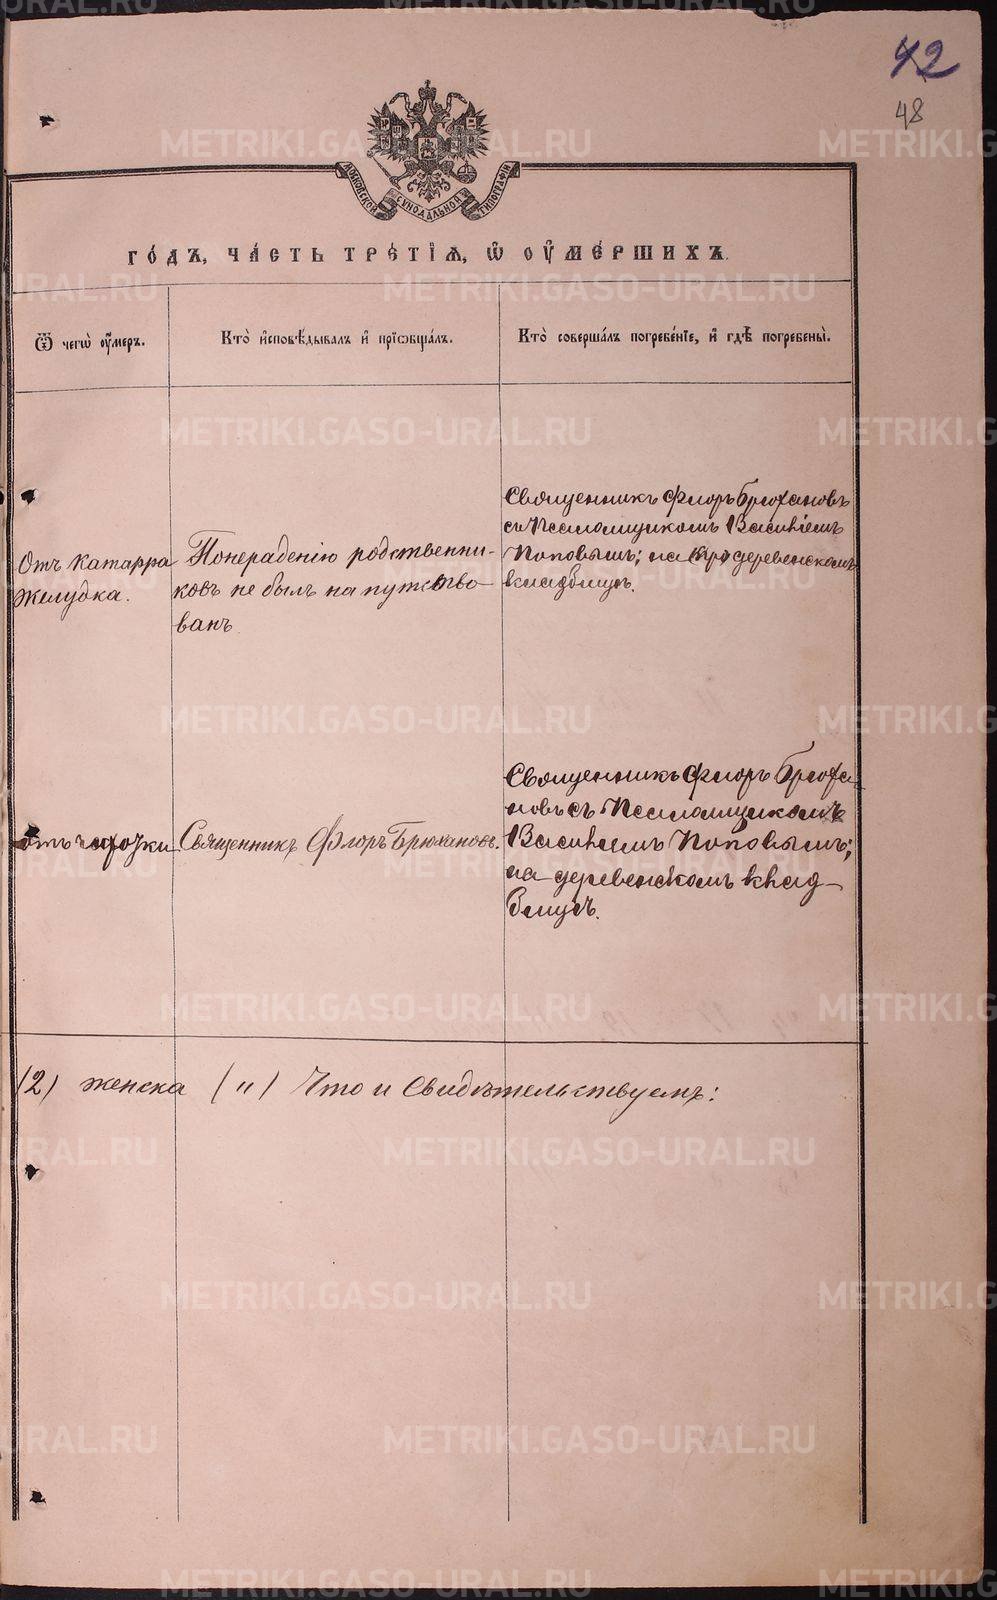 42
48
МОСКОВСКОЙ СѴНОДАЛЬНОЙ ТИПОГРАФІИ
ГО́ДЪ, ЧА́СТЬ ТРЕ́ТІѦ, Ѽ ОУ҆МЕ́РШИХЪ.
Ѿ чегѡ̀ оу҆́меръ.
Кто̀ и҆сповѣ́дывалъ и҆ прїѡбща́лъ.
Кто̀ соверша́лъ погребе́нїе, и҆ гдѣ̀ погребены̀.
Отъ катарра
желудка.
Понерадению родственни-
ковъ не былъ на путство-
ванъ
Священникъ Флоръ Брюхановъ
съ Псаломщикомъ Василіемъ
Поповымъ; на деревенскомъ
кладбищѣ.
отъ чахотки
Священникъ Флоръ Брюхановъ.
Священникъ Флоръ Брюха-
новъ съ Псаломщикомъ
Василіемъ Поповымъ;
на деревенскомъ клад-
бищѣ.
(2) женска (") Что и Свидѣтельствуемъ:
METRIKI.GASO-URAL.RU